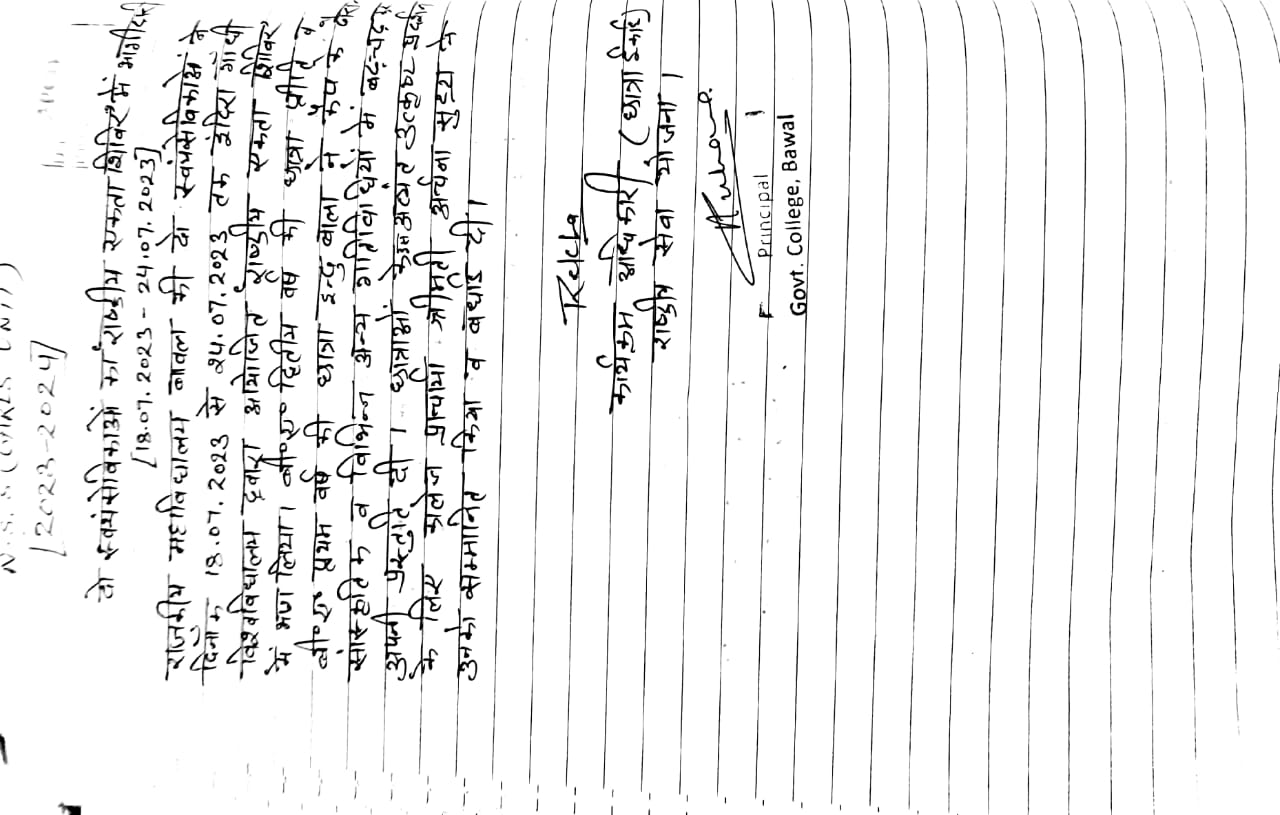 N.S.S (GIRLS UNIT)
[2023-2024]
दो स्वयंसेविकाओं का राष्ट्रीय एकता शिविर में भागीदारी
[18.07.2023 - 24.07.2023]
राजकीय महाविद्यालय बावल की दो स्वयंसेविकाओं ने
दिनांक 18.07.2023 से 24.07.2023 तक इंदिरा गांधी
विश्वविद्यालय द्वारा आयोजित राष्ट्रीय एकता शिविर
में भाग लिया। बी०ए० द्वितीय वर्ष की छात्रा प्रीति व
बी०ए० प्रथम वर्ष की छात्रा इन्दु बाला ने कैंप के
सांस्कृतिक व विभिन्न अन्य गतिविधियों में बढ़-चढ़
अपनी प्रस्तुति दी। छात्राओं के इस अत्यंत उत्कृष्ट प्रदर्शन
के लिए कॉलेज प्राचार्या श्रीमती अर्चना सुहाग ने
उनको सम्मानित किया व बधाई दी।
Rekha
कार्यक्रम अधिकारी (छात्रा ईकाई)
राष्ट्रीय सेवा योजना।
Principal
Govt. College, Bawal